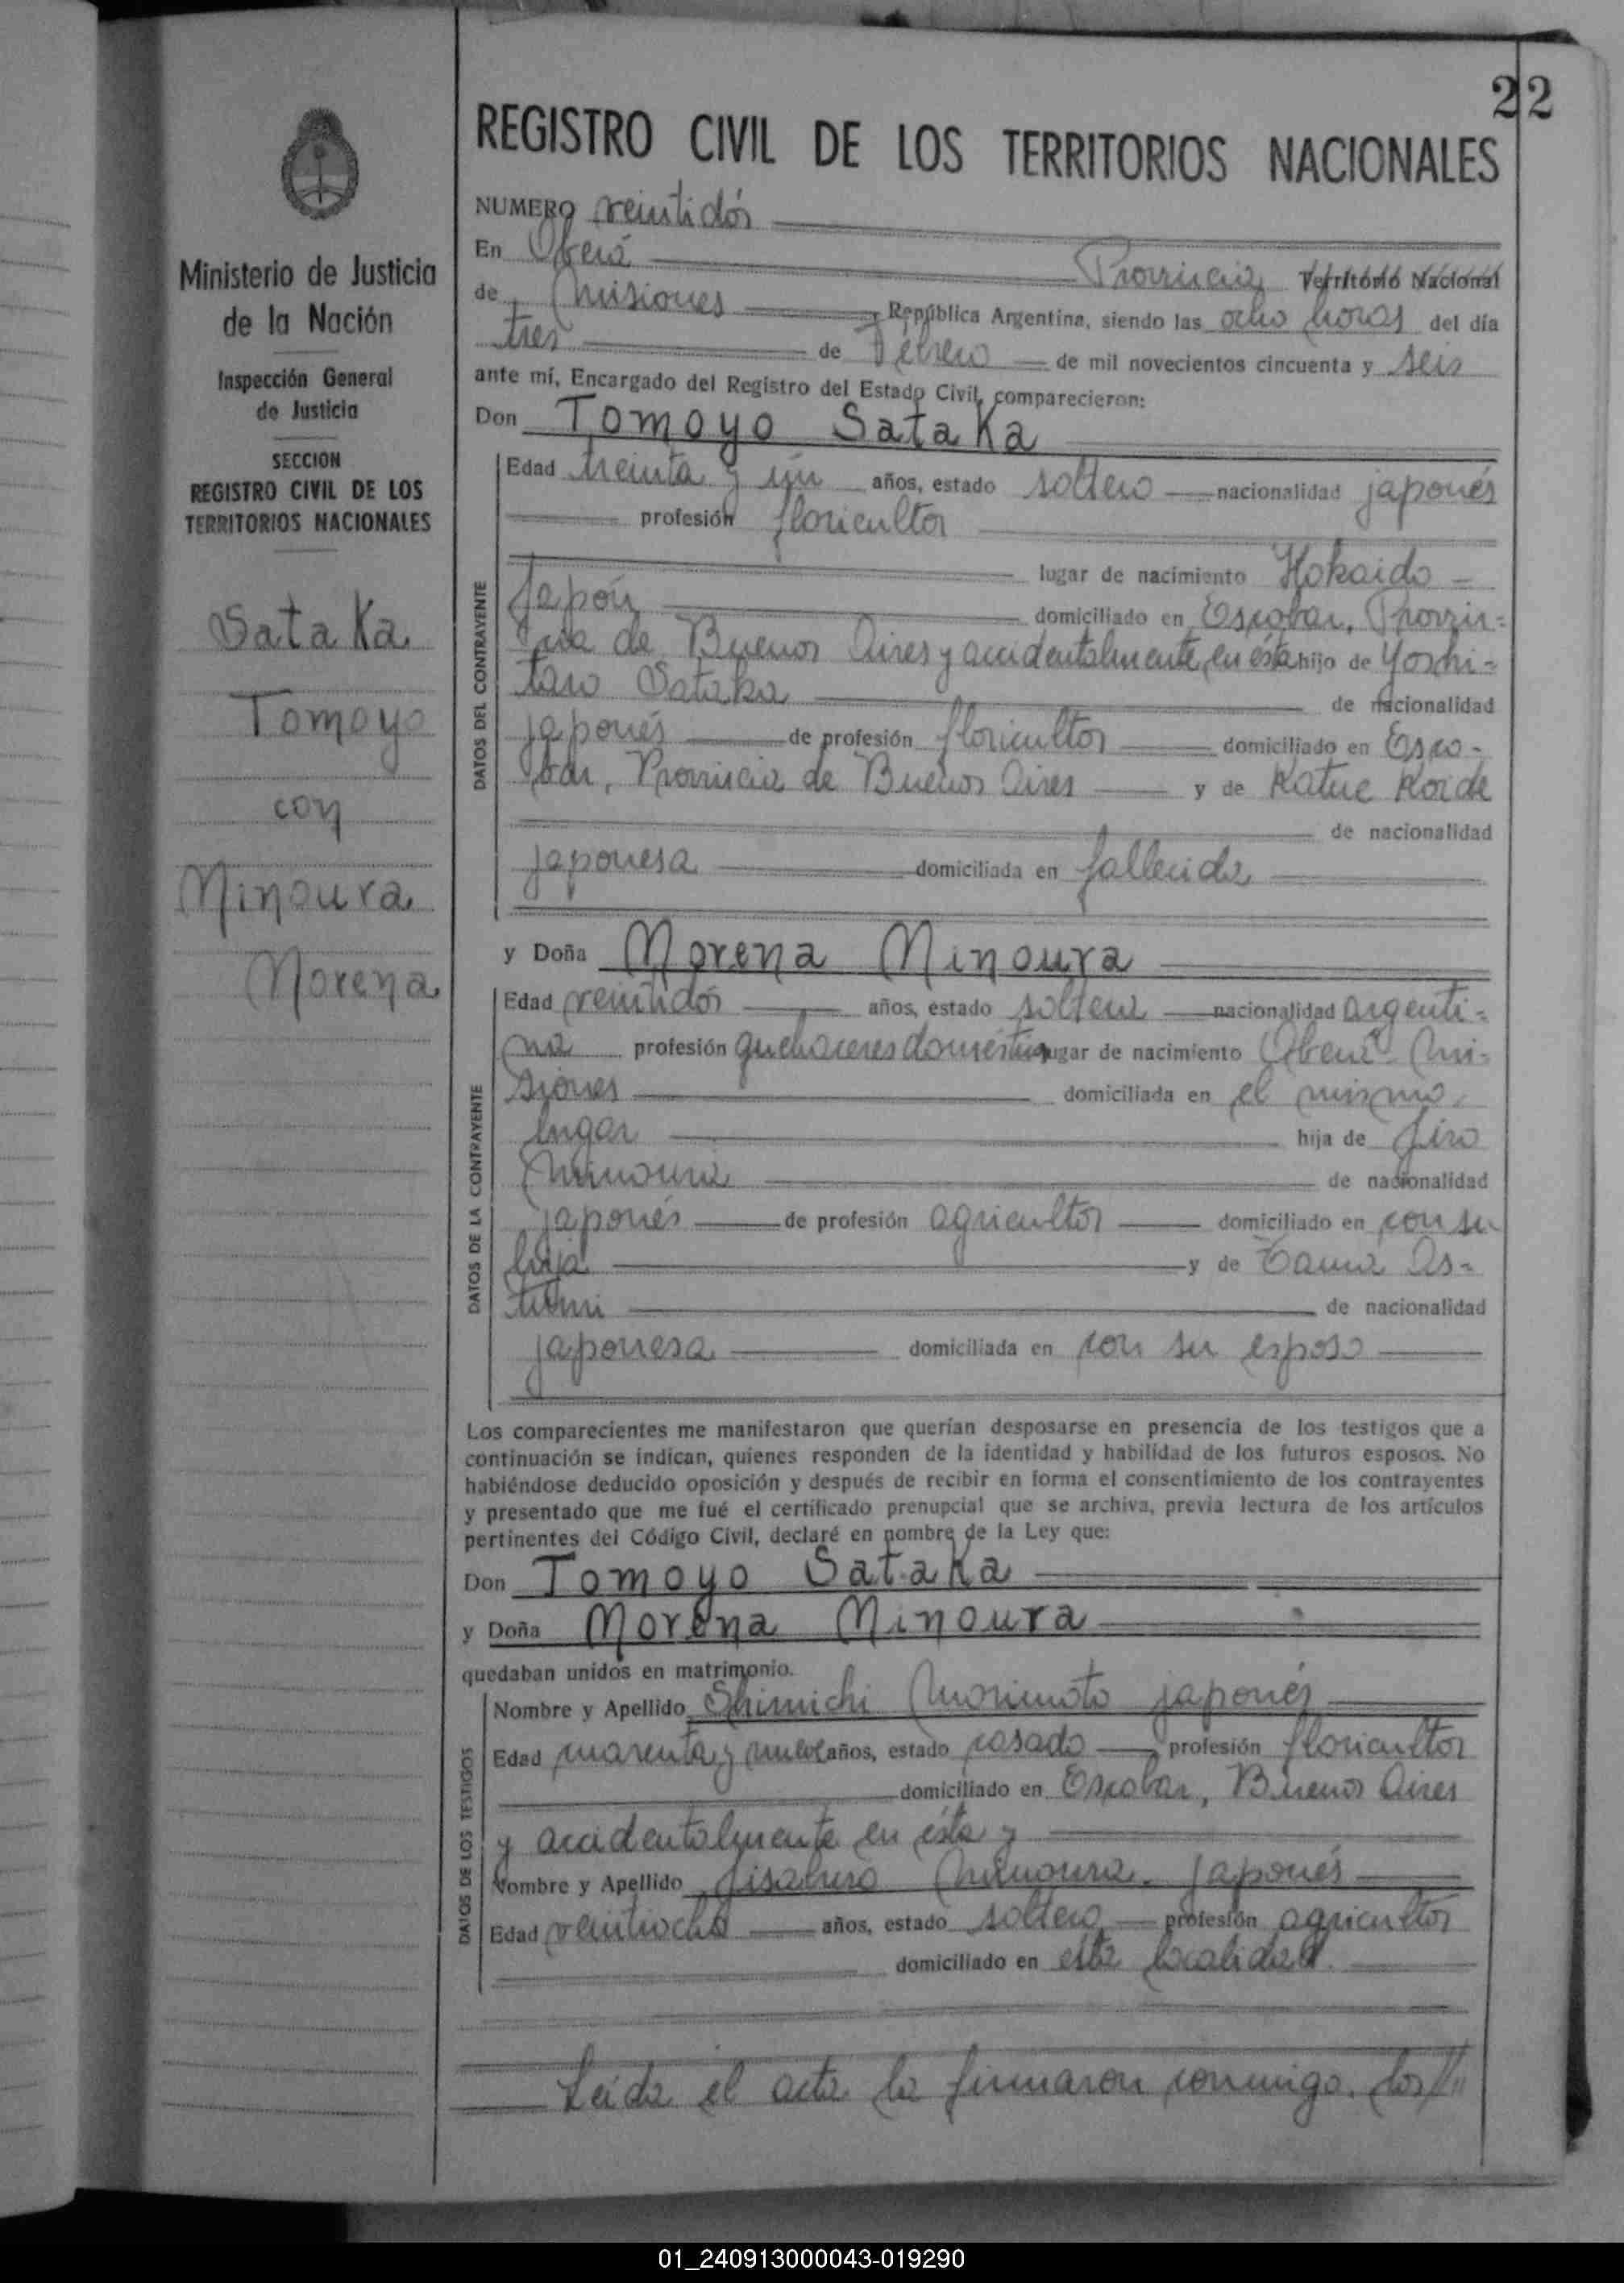 22
REGISTRO CIVIL DE LOS TERRITORIOS NACIONALES
Ministerio de Justicia
de la Nación
Inspección General
de Justicia
SECCION
REGISTRO CIVIL DE LOS
TERRITORIOS NACIONALES
Sataka
Tomoyo
con
Minoura
Morena
NUMERO veintidós
En Oberá Provincia Territorio Nacional
de Misiones República Argentina, siendo las ocho horas del día
tres de Febrero de mil novecientos cincuenta y seis
ante mí, Encargado del Registro del Estado Civil, comparecieron:
Don Tomoyo Sataka
DATOS DEL CONTRAYENTE
Edad treinta y un años, estado soltero nacionalidad japonés
profesión floricultor
lugar de nacimiento Hokaido =
Japón domiciliado en Escobar, Provin=
cia de Buenos Aires y accidentalmente en ésta hijo de Yoshi=
taro Sataka de nacionalidad
japonés de profesión floricultor domiciliado en Esco-
bar, Provincia de Buenos Aires y de Katue Koide
de nacionalidad
japonesa domiciliada en fallecida
y Doña Morena Minoura
DATOS DE LA CONTRAYENTE
Edad veintidós años, estado soltera nacionalidad argenti=
na profesión quehaceres domésticos lugar de nacimiento Oberá Mi-
siones domiciliada en el mismo
lugar hija de Jiro
Minoura de nacionalidad
japonés de profesión agricultor domiciliado en con su
hija y de Tama As=
tumi de nacionalidad
japonesa domiciliada en con su esposo
Los comparecientes me manifestaron que querían desposarse en presencia de los testigos que a
continuación se indican, quienes responden de la identidad y habilidad de los futuros esposos. No
habiéndose deducido oposición y después de recibir en forma el consentimiento de los contrayentes
y presentado que me fué el certificado prenupcial que se archiva, previa lectura de los artículos
pertinentes del Código Civil, declaré en nombre de la Ley que:
Don Tomoyo Sataka
y Doña Morena Minoura
quedaban unidos en matrimonio.
DATOS DE LOS TESTIGOS
Nombre y Apellido Shimichi Morimoto japonés
Edad cuarenta y nueve años, estado casado profesión floricultor
domiciliado en Escobar, Buenos Aires
y accidentalmente en ésta y
Nombre y Apellido Minoura. japonés
Edad veintiocho años, estado soltero profesión agricultor
domiciliado en esta localidad.
Leída el acta la firmaron conmigo, los //"
01_240913000043-019290